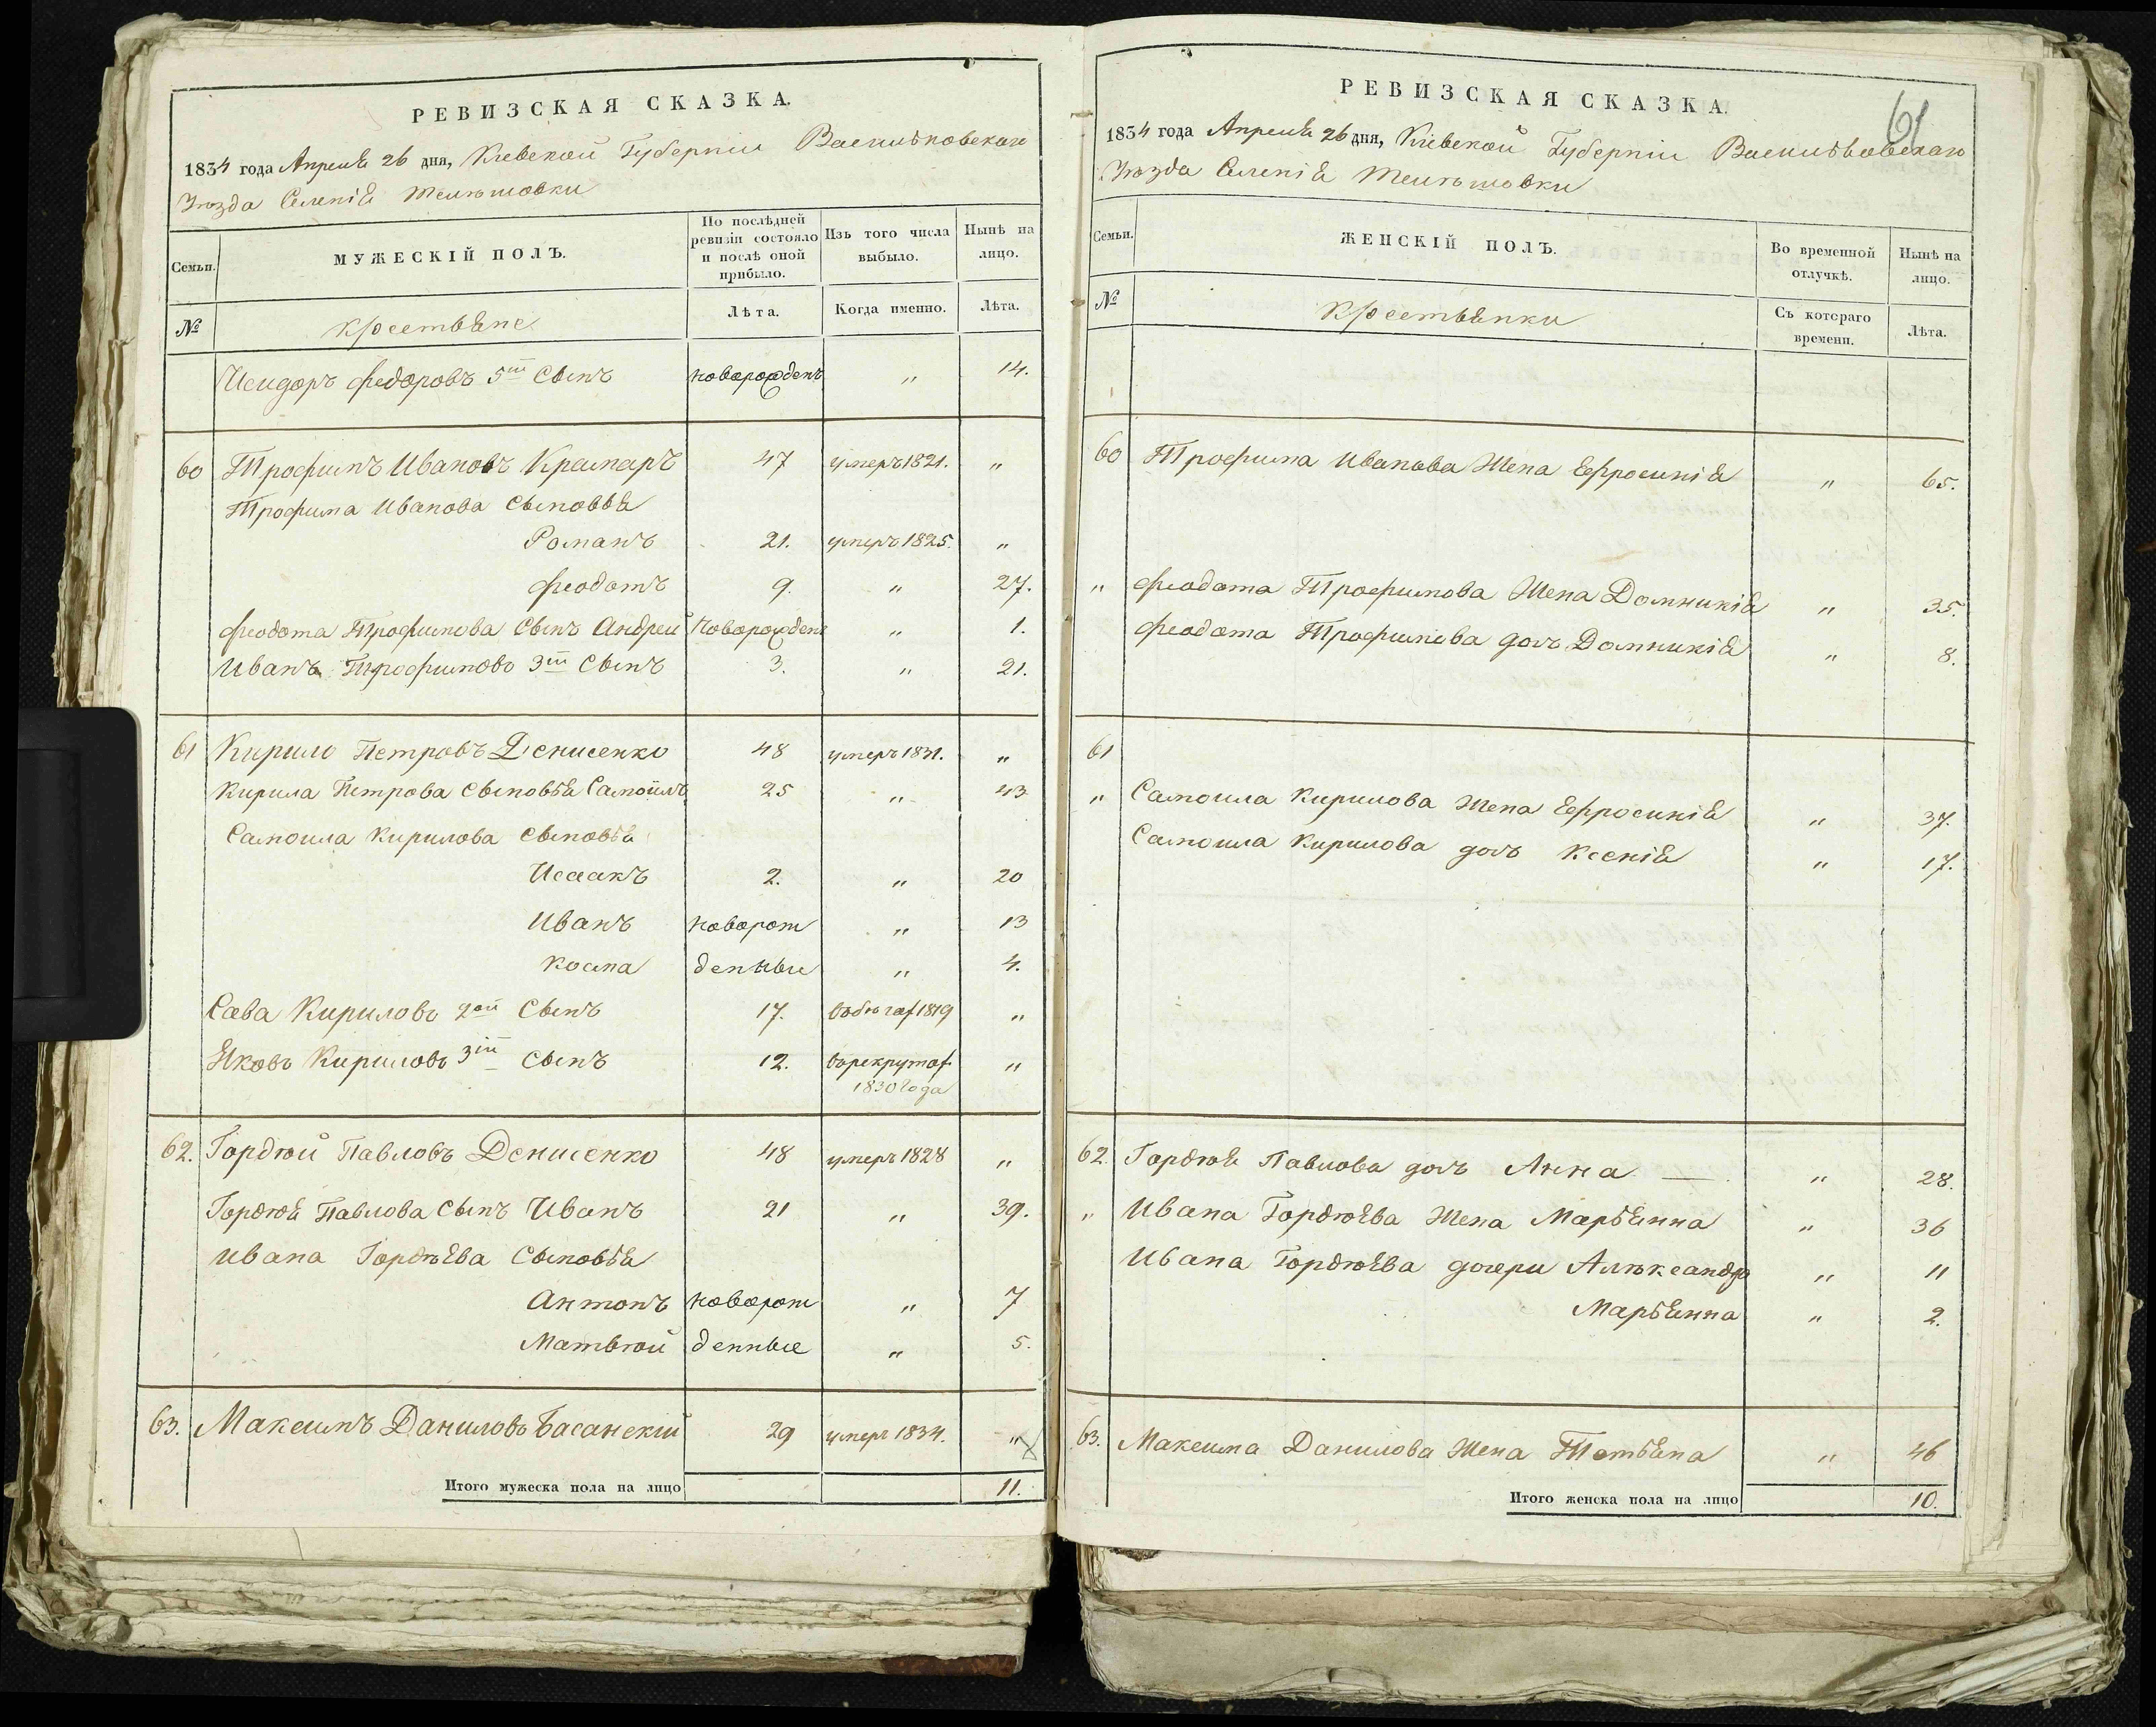 РЕВИЗСКАЯ СКАЗКА.
1834 года Апреля 26 дня, Кіевской Губерніи Васильковскаго
Уѣзда Селенія Телѣшовки
Семьи.
МУЖЕСКІЙ ПОЛЪ.
По послѣдней ревизіи состояло и послѣ оной прибыло.
Изъ того числа выбыло.
Нынѣ на лицо.
№
Крестьяне
Лѣта.
Когда именно.
Лѣта.
Исидоръ Федоровъ 5ій Сынъ новорожденъ " 14.
60 Трофимъ Ивановъ Крамаръ 47 умеръ 1821. "
Трофима Иванова Сыновья
Романъ 21. умеръ 1825. "
Феодотъ 9. " 27.
Феодота Трофимова Сынъ Андрей Новорожденъ " 1.
Иванъ Трофимовъ 3ій Сынъ 3. " 21.
61 Кирило Петровъ Денисенко 48 умеръ 1831. "
Кирила Петрова Сыновья Самойлъ 25 " 43
Самоила Кирилова Сыновья
Исаакъ 2. " 20
Иванъ новорож " 13
Косма денныи " 4.
Сава Кириловъ 2ой Сынъ 17. въ бѣгах 1819 "
Яковъ Кириловъ 3ій Сынъ 12. въ рекрутах "
1830 года
62. Гордѣй Павловъ Денисенко 48 умеръ 1828 "
Гордѣя Павлова Сынъ Иванъ 21 " 39.
Ивана Гордѣева Сыновья
Антонъ новорож " 7
Матвѣй денные " 5.
63. Максимъ Даниловъ Басанскій 29 умеръ 1834. "
Итого мужеска пола на лицо 11.
61
РЕВИЗСКАЯ СКАЗКА.
1834 года Апреля 26 дня, Кіевской Губерніи Васильковскаго
Уѣзда Селенія Телѣшовки
Семьи.
ЖЕНСКІЙ ПОЛЪ.
Во временной отлучкѣ.
Нынѣ на лицо.
№
Крестьянки
Съ котораго времени.
Лѣта.
60 Трофима Иванова Жена Ефросинія " 65.
" Феодота Трофимова Жена Домникія " 35.
Феодота Трофимова дочь Домникія " 8.
61
" Самоила Кирилова Жена Ефросинія " 37.
Самоила Кирилова дочь Ксенія " 17.
62. Гордѣя Павлова дочь Анна — " 28.
" Ивана Гордѣева Жена Марьянна " 36
Ивана Гордѣева дочери Алѣксандра " 11
Марьянна " 2.
63. Максима Данилова Жена Татьяна " 46
Итого женска пола на лицо 10.